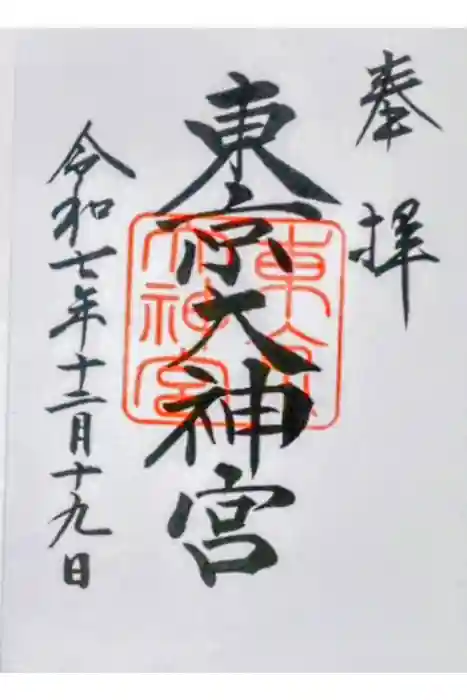 奉拝
東京大神宮
東京大神宮
令和七年十二月十九日